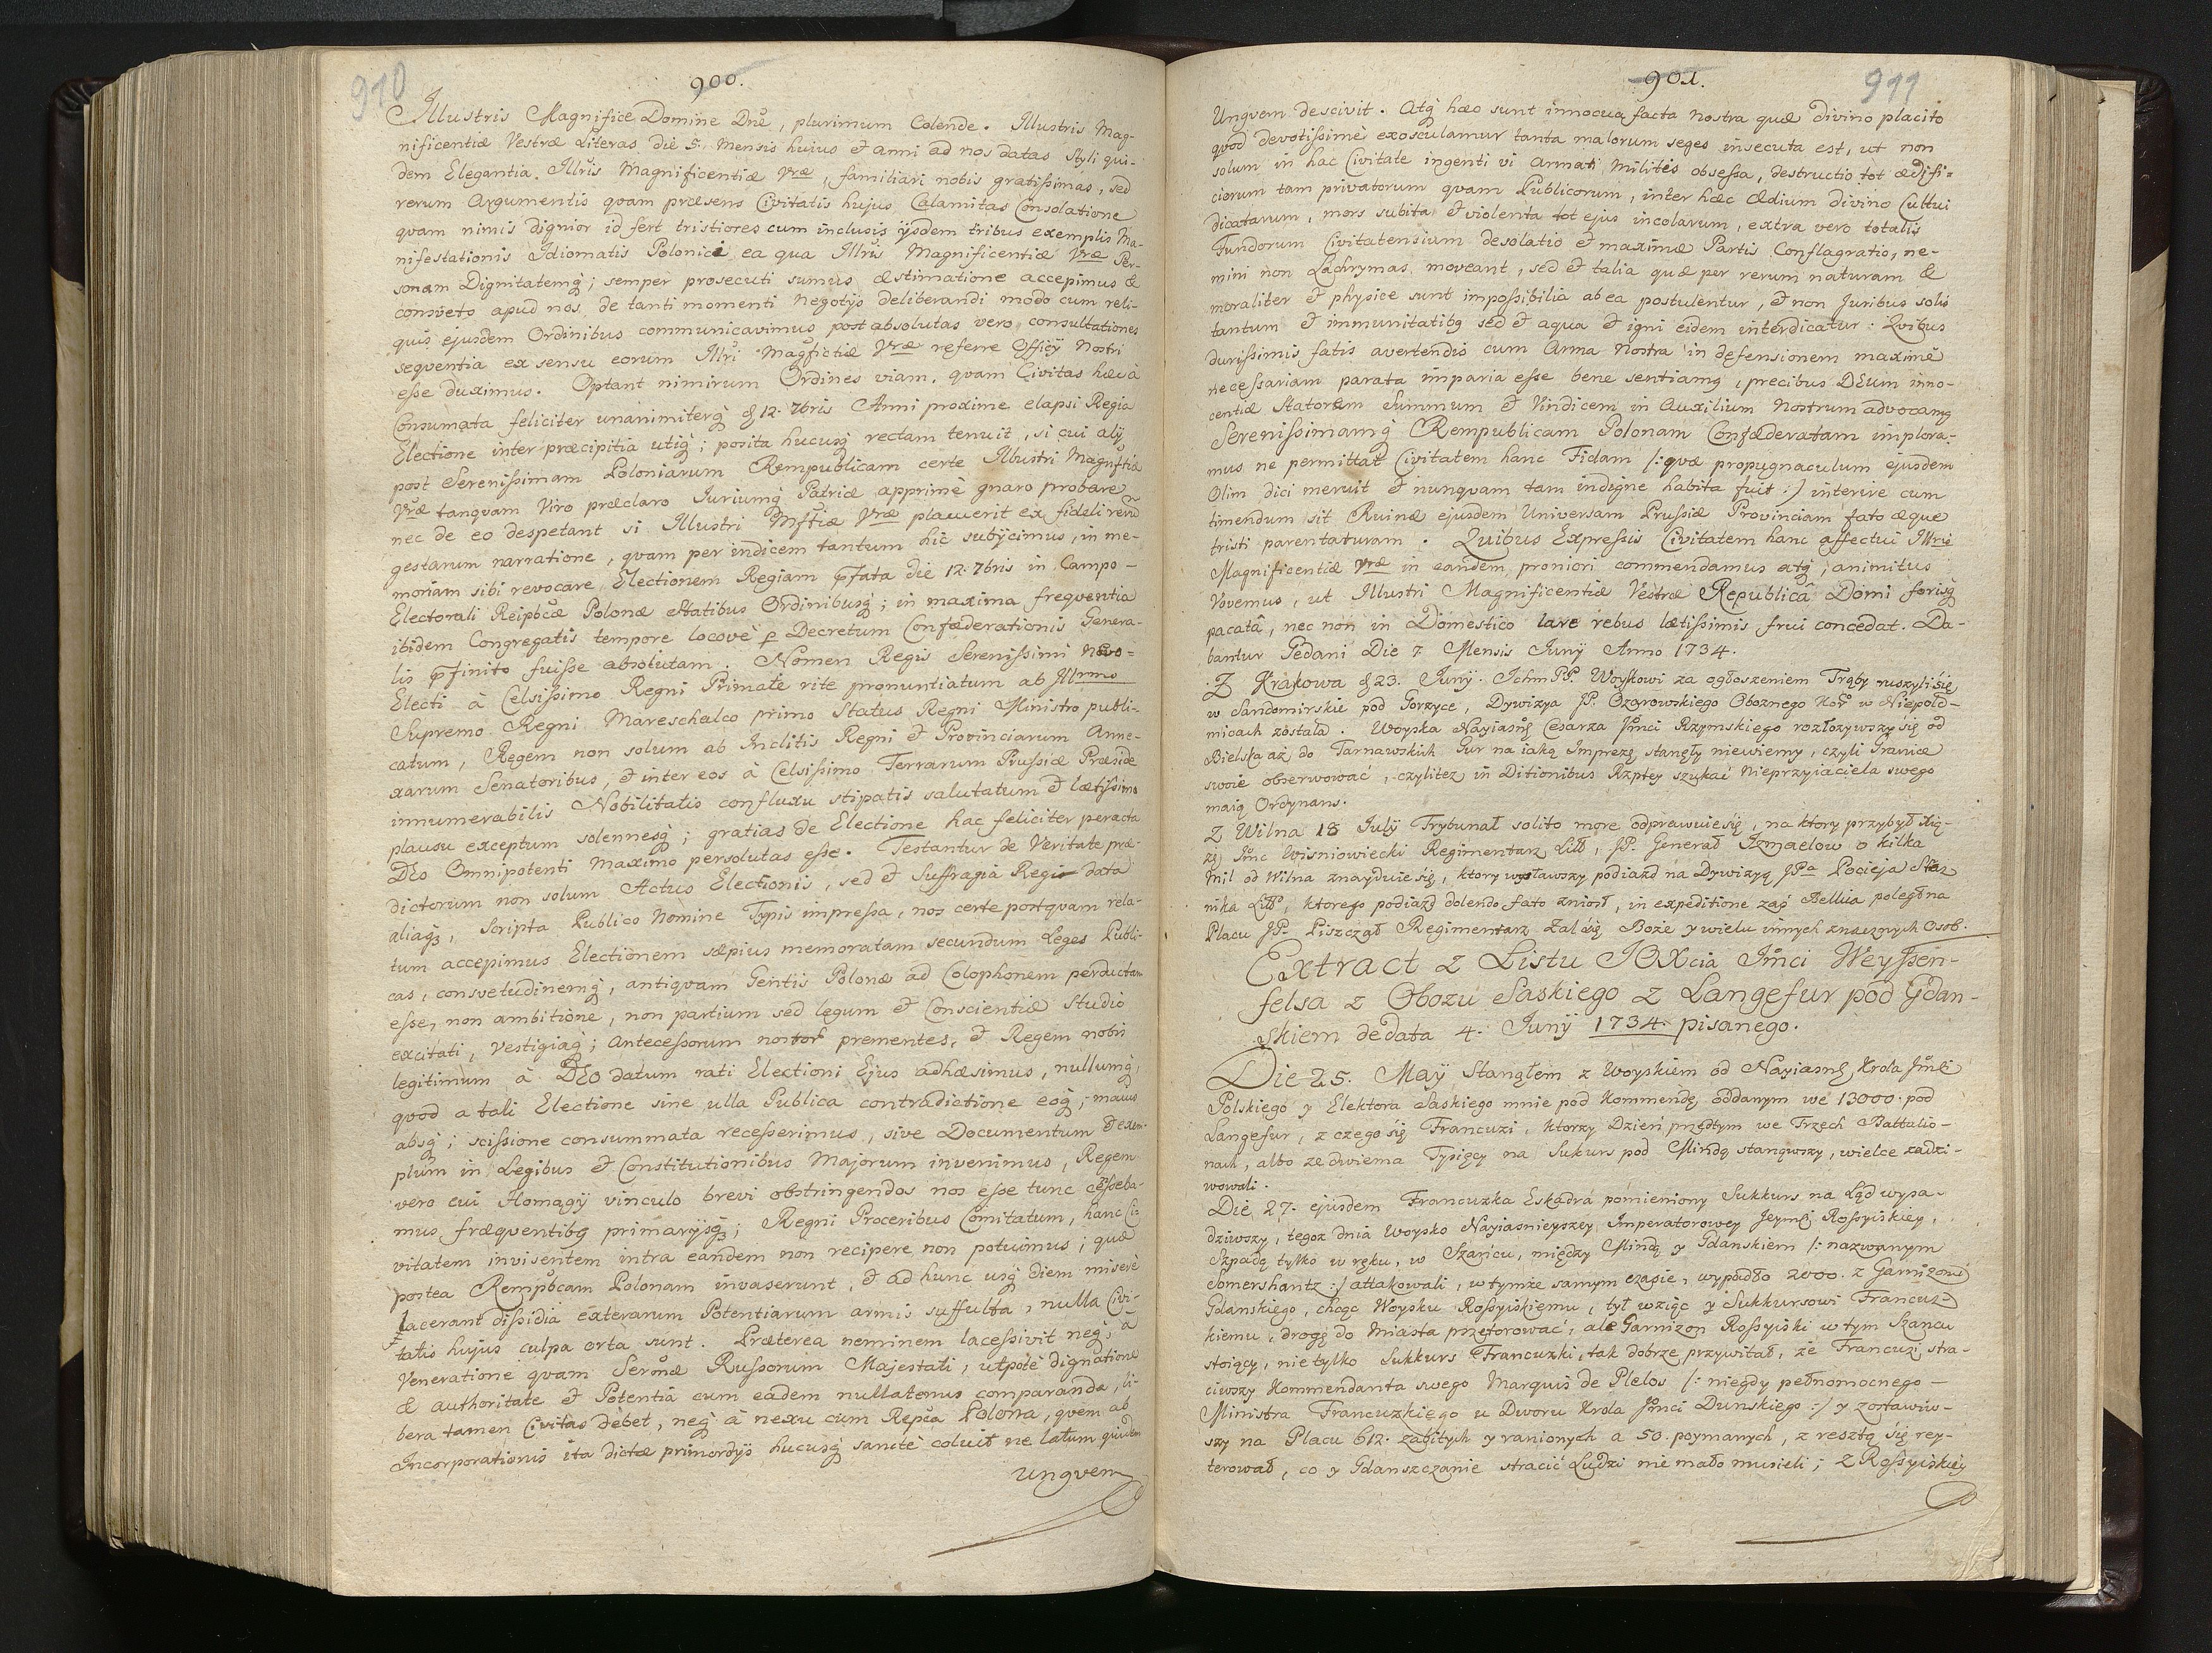 910
900.
Illustris Magnifice Domine Dnē, plurimum Colende. Illustris Mag-
nificentiæ Vestræ Literas die 5. Mensis huius et anni ad nos datas styli qui-
dem Elegantia. Illris Magnificentiæ Vræ, familiari nobis gratissimas, sed
rerum Argumentis quam præsens Civitatis hujus Calamitas Consolatione
quam nimis dignior id fert tristiores cum inclusis ijsdem tribus exemplis Ma-
nifestationis Idiomatis Polonici ea qua Illris Magnificentiæ Vræ Per-
sonam Dignitatemq; semper prosecuti sumus æstimatione accepimus &
consveto apud nos, de tanti momenti Negotijs deliberandi modo cum reli-
quis ejusdem Ordinibus communicavimus post absolutas vero consultationes
seqventia ex sensu eorum Illri Magfictiæ Vræ referre Officij Nostri
esse duximus. Optant nimirum Ordines viam, qvam Civitas hæc à
Consumata feliciter unanimiterq; d 12. 7bris Anni proxime elapsi Regia
Electione inter præcipitia utiq; posita hucusq; rectam tenuit, si cui alij
post Serenissimam Poloniarum Rempublicam certe Illustri Magnftiæ
Vræ tanquam Viro præclaro Juriumq; Patriæ apprimè gnaro probare
nec de eo despetant si Illustri Mftiæ Vræ placuerit ex fideli rerū
gestarum narratione, qvam per indicem tantum hic subijcimus, in me-
moriam sibi revocare, Electionem Regiam p̄fata die 12. 7bris in Campo-
Electorali Reipbcæ Polonæ statibus Ordinibusq; in maxima freqventia
ibidem Congregatis tempore locovè p Decretum Confæderationis Genera-
lis p̄finito fuisse absolutam. Nomen Regis Serenissimi Nevo-
Electi à Celsissimo Regni Primate rite pronuntiatum ab Illmmo
Supremo Regni Mareschalco primo Status Regni Ministro publi-
catum, Regem non solum ab Inclitis Regni et Provinciarum Anne-
xarum Senatoribus, et inter eos à Celsissimo Terrarum Prussiæ Præside
innumerabilis Nobilitatis confluxu stipatis salutatum et lætissimo
plausu exceptum solennesq; gratias de Electione hac feliciter peracta
DEo Omnipotenti Maximo persolutas esse. Testantur de Veritate præ-
dictorum non solum Actus Electionis, sed et Suffragia Regi data
aliaq3, scripta Publico Nomine Typis impressa, nos certe postqvam rela-
tum accepimus Electionem sæpius memoratam secundum Leges Publi-
cas, consvetudinemq; antiqvam Gentis Polonæ ad Colophonem perductam
esse, non ambitione, non partium sed legum et Conscientiæ studio
excitati, vestigiaq; Antecessorum nostor prementes, et Regem nobis
legitimum à DEO datum rati Electioni Ejus adhæsimus, nullumq;
qvod a tali Electione sine ulla Publica contradictione eoq; maius
absq; scissione consummata recesserimus, sive Documentum et exem-
plum in Legibus et Constitutionibus Majorum invenimus, Regem
vero cui Homagij vinculo brevi obstringendos nos esse tunc censeba-
mus fræqventibq primarijsq3; Regni Proceribus Comitatum, hanc Ci-
vitatem invisentem intra eandem non recipere non potuimus; quæ
postea Rempbcam Polonam invaserunt, et ad hunc usq; diem miserè
lacerant dissidia exterarum Potentiarum armis suffulta, nulla Civi-
tatis hujus culpa orta sunt. Præterea neminem lacessivit neq; à
Veneratione qvam Serōnæ Russorum Majestati, utpote dignatione
& authoritate et Potentiâ cum eadem nullatenus comparanda, li-
bera tamen Civitas debet, neq; à nexu cum Repca Polona, qvem ab
Incorporationis ita dictæ primordijs hucusq; sanctè coluit ne latum quidem
Ungvem
901.
911
Ungvem descivit. Atq; hæc sunt innocua facta nostra quæ divino placito
qvod devotissimè exosculamur tanta malorum seges insecuta est, ut non
solum in hac Civitate ingenti vi armati militis obsessa, destructio tot ædifi-
ciorum tam privatorum qvam Publicorum, inter hæc Ædium divino Cultui
dicatarum, mors subita et violenta tot ejus incolarum, extra vero totalis
Fundorum Civitatensium desolatio et maximæ Partis Conflagratio, ne-
mini non Lachrymas moveant, sed et talia quæ per rerum naturam &
moraliter et physice sunt impossibilia ab ea postulentur, et non Juribus solis
tantum et immunitatibq sed et aqua et igni eidem interdicatur: Qvibus
durissimis fatis avertendis cum Arma Nostra in defensionem maximè
necessariam parata imparia esse bene sentiamq, precibus DEum inno-
centiæ Statorem Summum et Vindicem in Auxilium Nostrum advocamq
Serenissimamq; Rempublicam Polonam Confæderatam implora-
mus ne permittat Civitatem hanc Fidam /: qvæ propugnaculum ejusdem
Olim dici meruit et nunqvam tam indigne habita fuit :/ interire cum
timendum sit Ruinæ ejusdem Universam Prussiæ Provinciam fato æque
tristi parentaturam. Quibus Expressis Civitatem hanc affectui Illris
Magnificentiæ Vræ in eandem proniori commendamus atq; animitus
Vovemus, ut Illustri Magnificentiæ Vestræ Republicâ Domi forisq;
pacatâ, nec non in Domestico lare rebus lætissimis frui concedat. Da-
bantur Gedani Die 7 Mensis Junij Anno 1734.
Z Krakowa d 23. Junij. Ichm PP. Woyskowi za ogłoszeniem Trąby ruszyli się
w Sandomirskie pod Gorzyce, Dywizya JP. Ozarowskiego Oboznego Kor w Niepoło-
micach została. Woyska Nayiasng Cesarza Jmci Rzymskiego rozłozywszy się od
Bielska aż do Tarnawskich Gur na iaką Imprezę stanęły niewiemy, czyli Granice
swoie obserwować, czylitez in Ditionibus Rzptey szukać Nieprzyiaciela swego
maią Ordynans.
Z Wilna 18 July Trybunał solito more odprawuie się, na ktory przybył Xią-
żę Jmc Wisniowiecki Regimentarz Litt, JP. Generał Izmaelow o kilka
mil od Wilna znayduie się, ktory wysławszy podiazd na Dywizyą JPa Pocieja Straz
nika Litt, ktorego podiazd dolendo fato zniosł, in expeditione zaś Bellica poległ na
Placu JP. Piszczał Regimentarz Zal się Boże y wielu innych znacznych Osob.
Extract z Listu JOXcia Jmci Weyssen-
felsa z Obozu Saskiego z Langefur pod Gdan-
skiem de data 4. Junij 1734. pisanego.
Die 25. Maij Stangłem z Woyskiem od Nayiasng Krola Jmci
Polskiego y Elektora Saskiego mnie pod Kommendę oddanym we 13000. pod
Langefur, z czego się Francuzi, ktorzy Dzień przedtym we Trzech Battalio-
nach, albo ze dwiema Tysięcy na Sukurs pod Mindą stanąwszy, wielce zadzi-
wowali.
Die 27. ejusdem Francuzka Eskadra pomieniony Sukkurs na Ląd wypa-
dziwszy, tegoz dnia Woysko Nayiasnieyszey Imperatorowey Jeymci Rossyiskiey,
Szpadą tylko w ręku, w Szańcu, między Mindą y Gdanskiem /: nazwanym
Somershantz :/ attakowali, w tymże samym czasie, wypadło 2000. z Garnizonu
Gdanskiego, chcąc Woysku Rossyiskiemu, tył wziąc y Sukkursowi Francuz
kiemu, drogę do Miasta przetorować, ale Garnizon Rossyiski w tym Szancu
stoiący, nie tylko Sukkurs Francuzki, tak dobrze przywitał, że Francuzi stra-
ciwszy Kommendanta swego Marquis de Plelos /: niegdy pełnomocnego-
Ministra Francuzkiego u Dworu Krola Jmci Dunskiego :/ y zostawiw-
szy na Placu 612. zabitych y ranionych a 50. poymanych, z resztą się rey-
terował, co y Gdanszczanie stracić Ludzi nie mało musieli; z Rossyiskiey